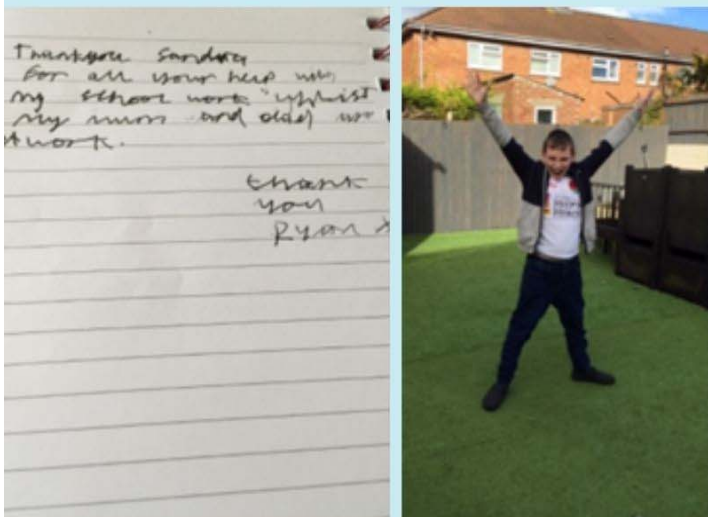 Thankyou Sandra
For all your help with
my school work "whilst
my mum and dad are
at work.
thank
you
Ryan x